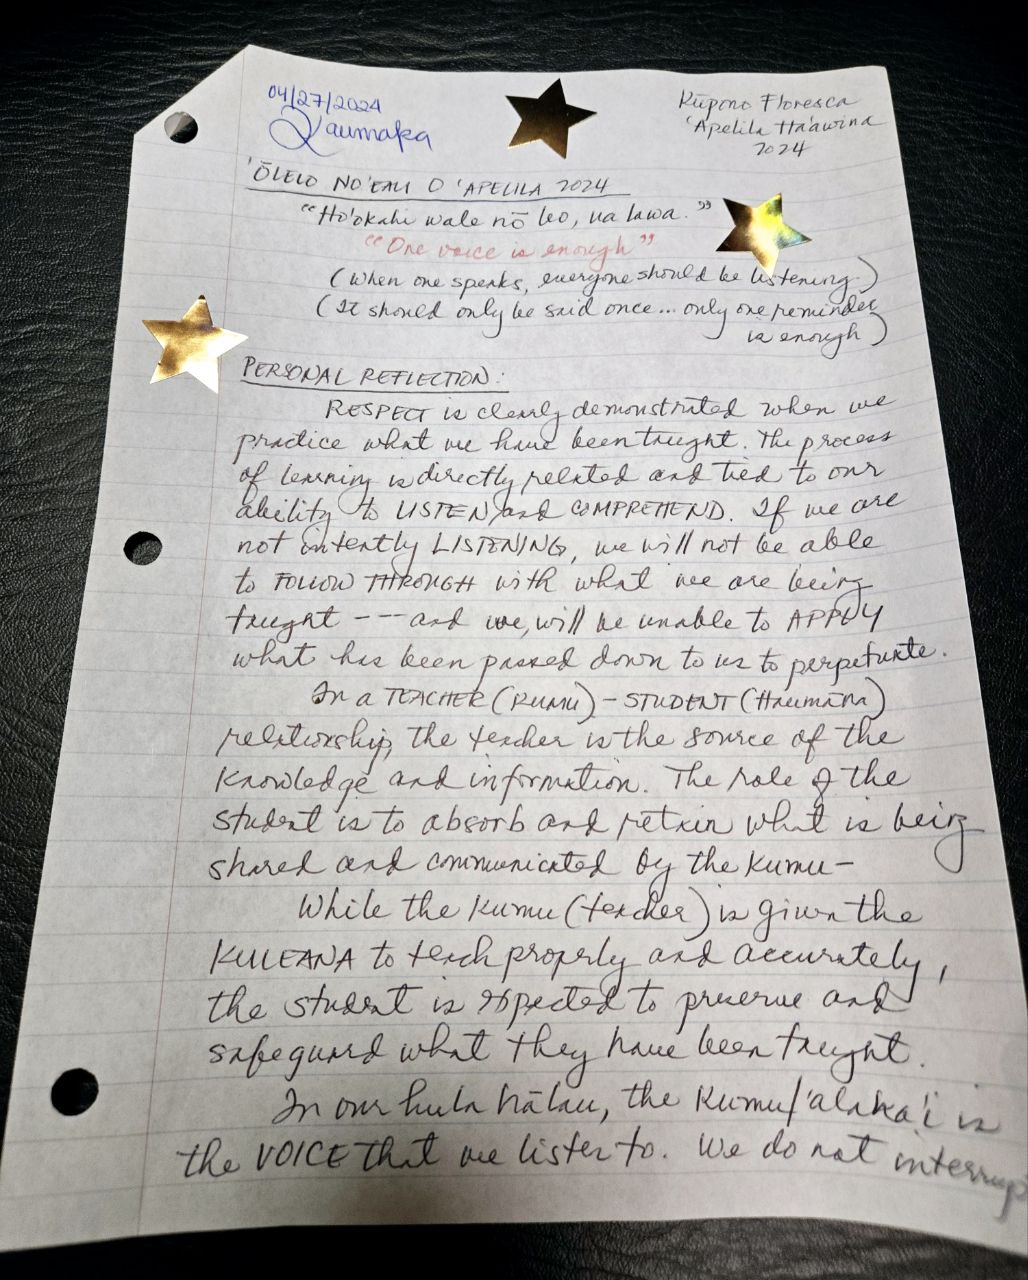 04/27/2024
Kaumaka
Kūpono Floresca
'Apelila Ha'awina
2024
'ŌLELO NO'EAU O 'APELILA 2024
"Ho'okahi wale nō leo, ua lawa."
"One voice is enough"
(when one speaks, everyone should be listening)
(It should only be said once... only one reminder
is enough)
PERSONAL REFLECTION:
RESPECT is clearly demonstrated when we
practice what we have been taught. The process
of learning is directly related and tied to our
ability to LISTEN and COMPREHEND. If we are
not intently LISTENING, we will not be able
to FOLLOW THROUGH with what we are being
taught --- and we, will be unable to APPLY
what has been passed down to us to perpetuate.
In a TEACHER (KUMU) - STUDENT (Haumāna)
relationship, the teacher is the source of the
knowledge and information. The role of the
student is to absorb and retain what is being
shared and communicated by the Kumu -
While the Kumu (teacher) is given the
KULEANA to teach properly and accurately,
the student is expected to preserve and
safeguard what they have been taught.
In our hula hālau, the Kumu/'alaka'i is
the VOICE that we listen to. We do not interrup